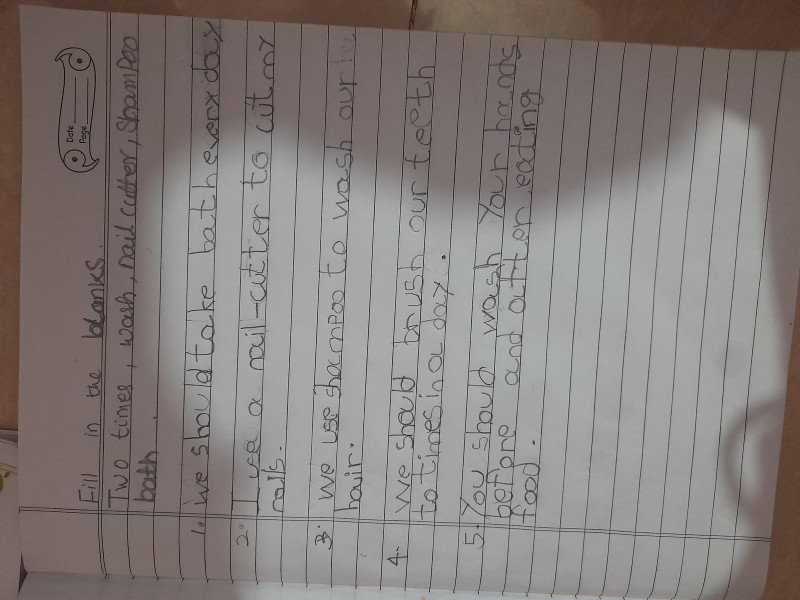 Date
Page
Fill in the blanks.
Two times, wash, nail cutter, shampoo
bath.
1. We should take bath every day
2. I use a nail-cutter to cut my
nails.
3. We use shampoo to wash our
hair.
4. We should brush our teeth
to times in a day.
5. You should wash Your hands
before and after eating
food.